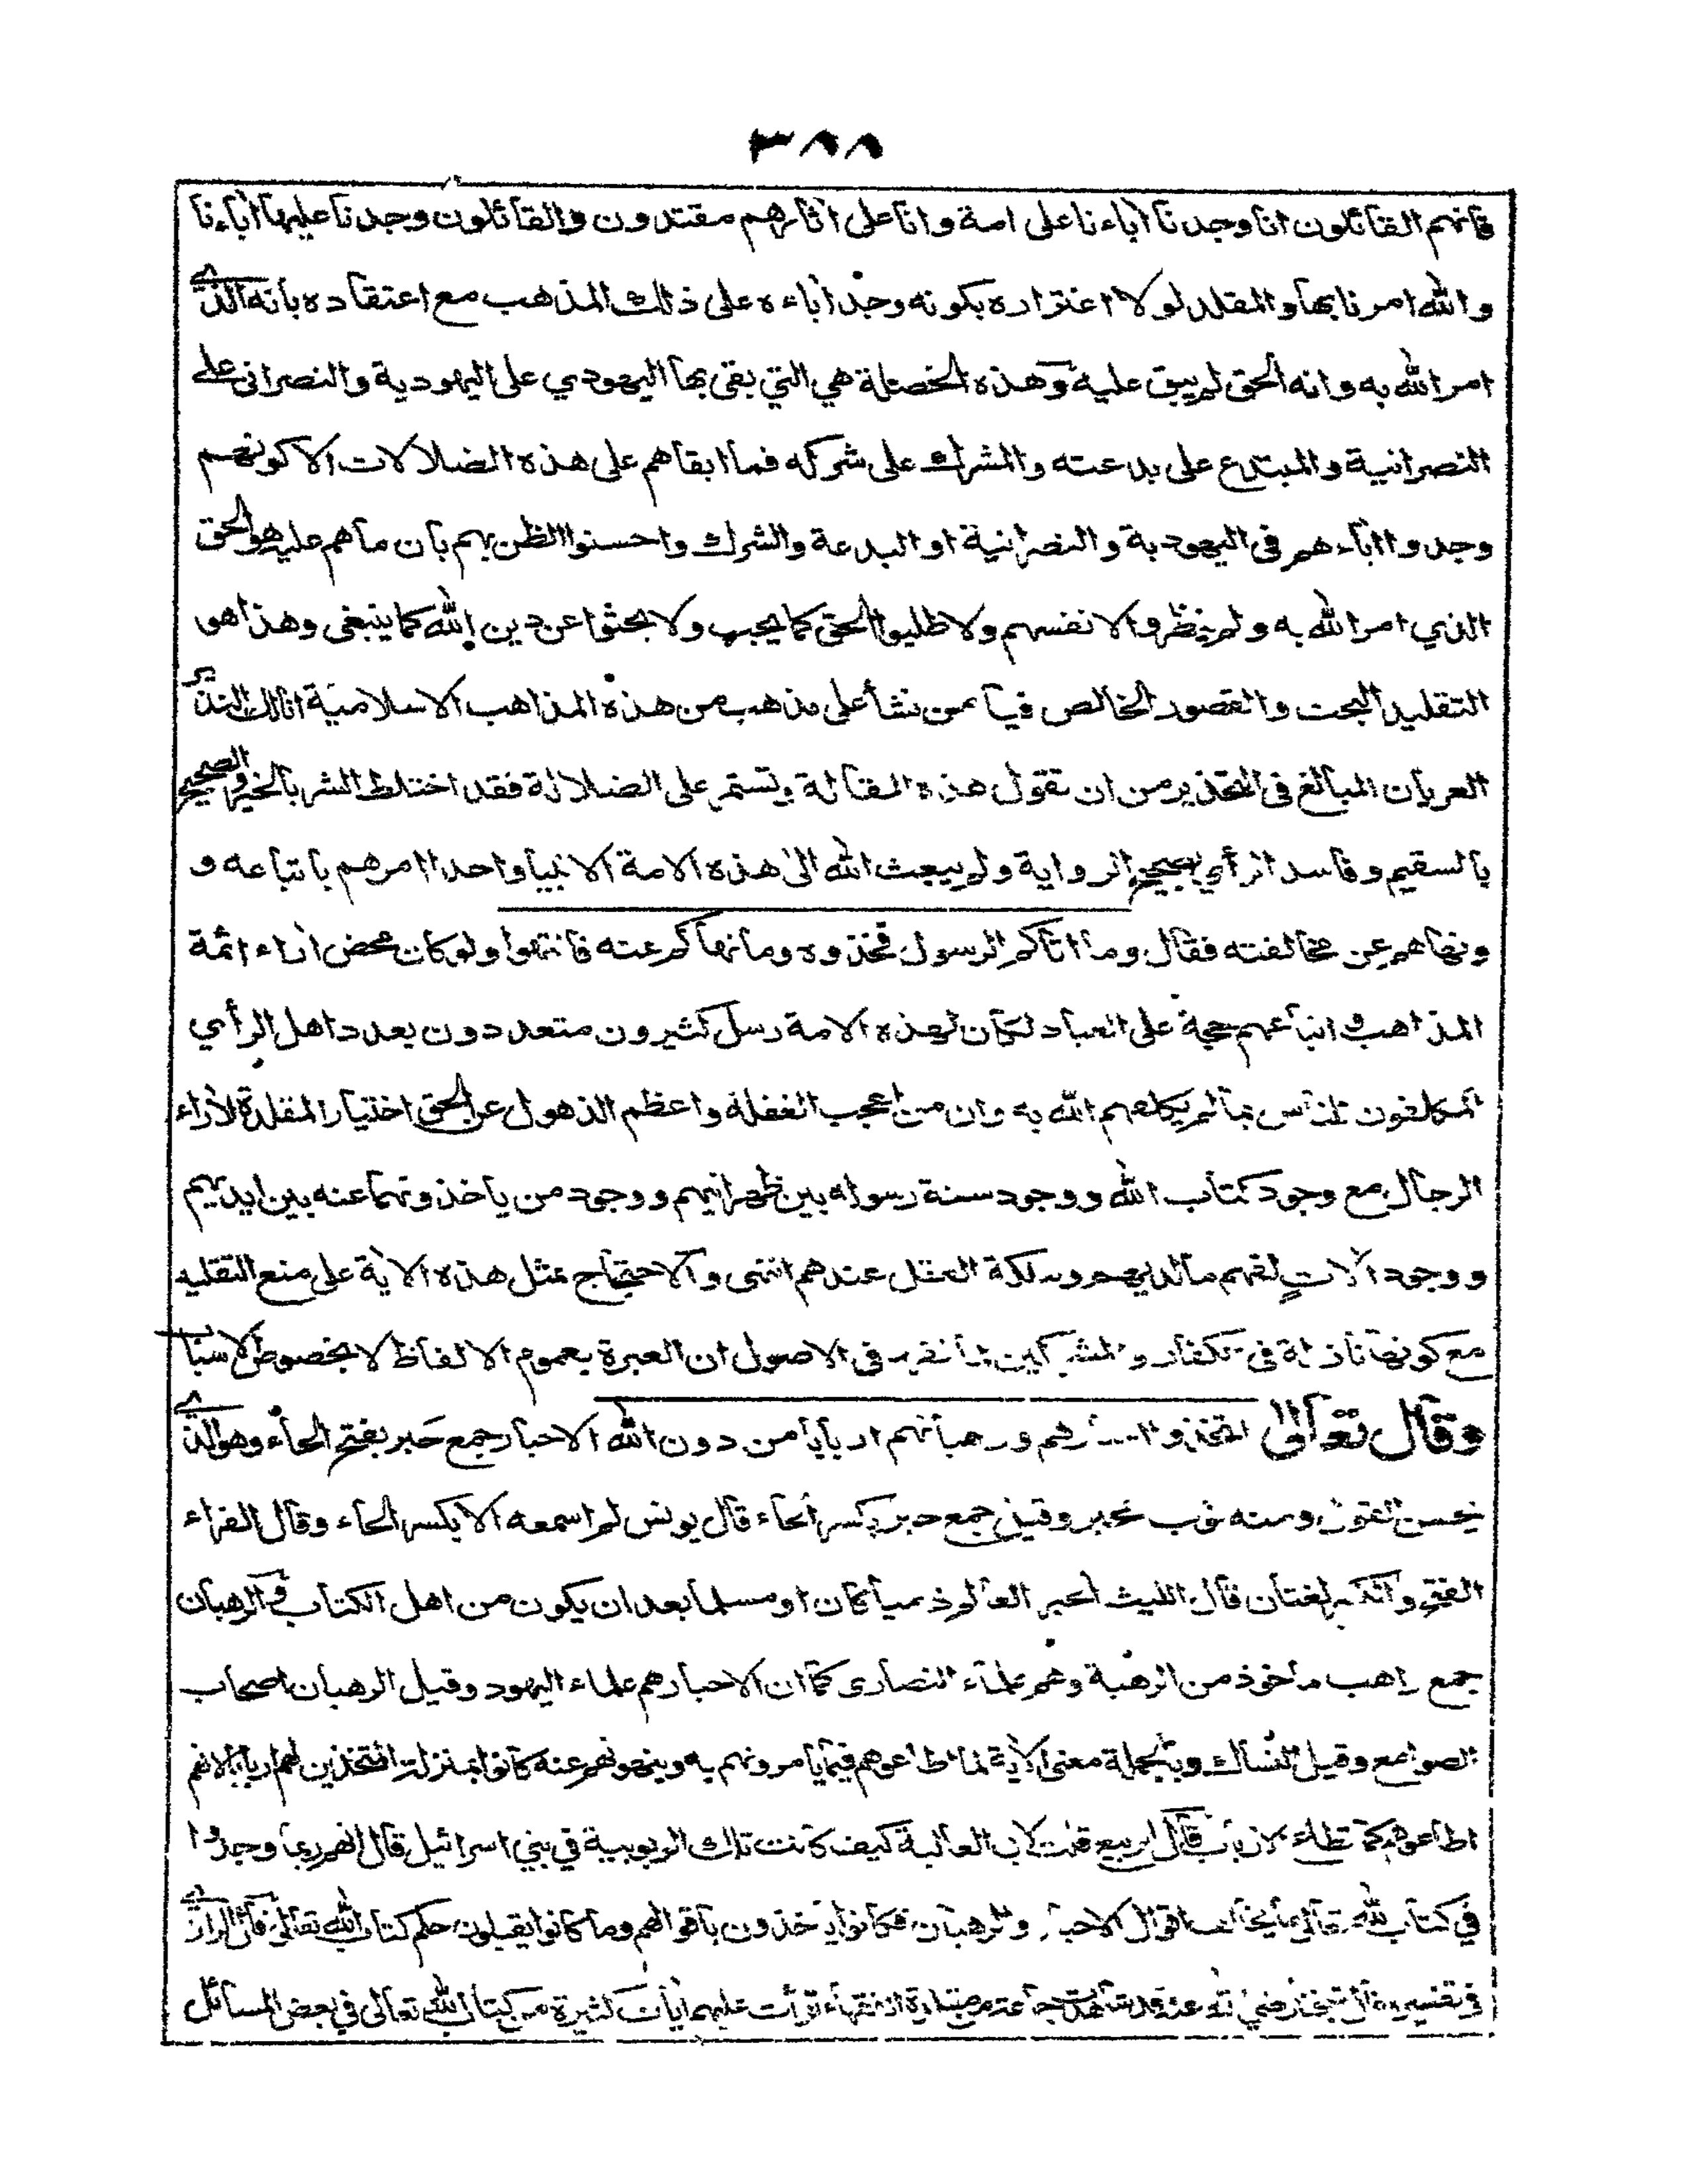 ٣٨٨
فانهم القائلون انا وجدنا اباءنا على امة وانا على اثارهم مقتدون والقائلون وجدنا عليها اباءنا
والله امرنا بها والمقلد لولا اغتراره بكونه وجد اباءه على ذلك المذهب مع اعتقاده بانه الذي
امر الله به وانه الحق لم يبق عليه وهذه الخصلة هي التي بقى بها اليهودي على اليهودية والنصرانى على
النصرانية والمبتدع على بدعته والمشرك على شركه فما ابقاهم على هذه الضلالات الا كونهم
وجدوا اباءهم فى اليهودية والنصرانية او البدعة والشرك واحسنوا الظن بهم بان ما هم عليه هو الحق
الذي امر الله به ولم ينظروا لانفسهم ولا طلبوا الحق كما يجب ولا بحثوا عن دين الله كما ينبغى وهذا هو
التقليد البحت والقصور الخالص فيا من نشأ على مذهب من هذه المذاهب الاسلامية انا لك النذير
العريان المبالغ فى التحذير من ان تقول هذه المقالة وتستمر على الضلالة فقد اختلط الشر بالخير والصحيح
بالسقيم وفاسد الرأي بصحيح الرواية ولم يبعث الله الى هذه الامة الا نبيا واحدا امرهم باتباعه و
ونهاهم عن مخالفته فقال وما اتاكم الرسول فخذوه وما نهاكم عنه فانتهوا ولو كان محض اراء ائمة
المذاهب واتباعهم حجة على العباد لكان لهذه الامة رسل كثيرون متعددون بعدد اهل الرأي
المكلفون للناس بما لم يكلفهم الله به وان من اعجب الغفلة واعظم الذهول عن الحق اختيار المقلدة لأراء
الرجال مع وجود كتاب الله ووجود سنة رسوله بين ظهرانيهم ووجود من ياخذونهما عنه بين ايديهم
ووجود الات لفهم ما لديهم وملكة العقل عندهم انتهى والاحتجاج بمثل هذه الاية على منع التقليد
مع كونها نازلة فى الكفار والمشركين لما تقرر فى الاصول ان العبرة بعموم الالفاظ لا بخصوص الاسباب
وقال تعالى اتخذوا احبارهم ورهبانهم اربابا من دون الله الاحبار جمع حبر بفتح الحاء وهو الذي
يحسن القول ومنه ثوب محبر وقيل جمع حبر بكسر الحاء قال يونس لم اسمعه الا بكسر الحاء وقال الفراء
الفتح والكسر لغتان قال الليث الحبر العالم ذميا كان او مسلما بعد ان يكون من اهل الكتاب والرهبان
جمع راهب ماخوذ من الرهبة وهم علماء النصارى كما ان الاحبار هم علماء اليهود وقيل الرهبان اصحاب
الصوامع وقيل النساك وبالجملة معنى الاية لما اطاعوهم فيما يامرونهم به وينهونهم عنه كانوا بمنزلة المتخذين لهم اربابا لانهم
اطاعوهم كما تطاع الارباب قال الربيع قلت لابى العالية كيف كانت تلك الربوبية في بني اسرائيل قال انهم ربما وجدوا
في كتاب الله تعالى ما يخالف اقوال الاحبار والرهبان فكانوا ياخذون باقوالهم وما كانوا يقبلون حكم كتاب الله تعالى قال الرازي
فى تفسيره قال شيخنا رضي الله عنه قد شاهدت جماعة من مقلدة الفقهاء قرأت عليهم ايات كثيرة من كتاب الله تعالى في بعض المسائل